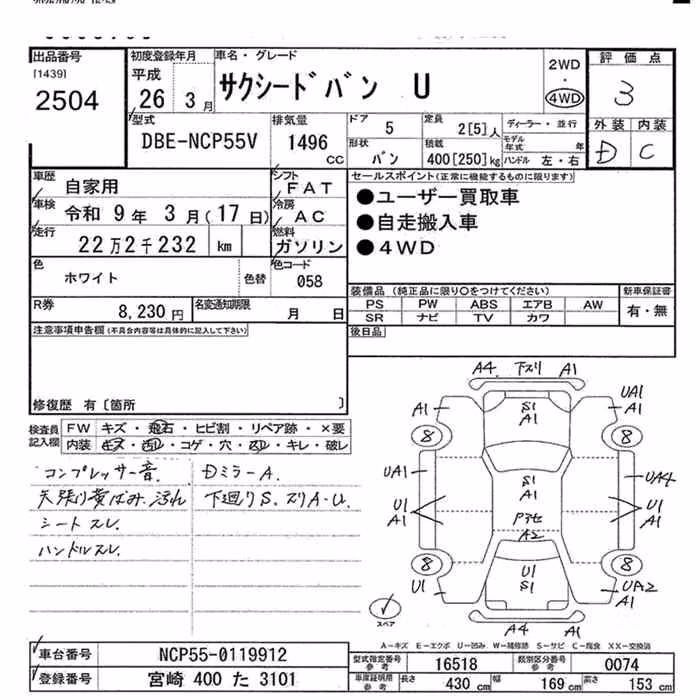 出品番号 初度登録年月 車名・グレード 2WD・4WD 評価点
[1439] 2504 平成 26 3月 サクシードバン U 3
型式 排気量 ドア 定員 ディーラー・並行 外装 内装
DBE-NCP55V 1496 CC 5 2[5]人 モデル年式 年 D C
形状 バン 積載 400[250]kg ハンドル 左・右
車歴 自家用 シフト FAT セールスポイント(正常に機能するものに限ります)
車検 令和 9年 3月(17日) 冷房 AC ●ユーザー買取車
走行 22万2千232 km 燃料 ガソリン ●自走搬入車
色 ホワイト 色替 色コード 058 ●4WD
装備品 (純正品に限り○をつけてください) 新車保証書
R券 8,230円 名変通知期限 月 日 PS PW ABS エアB AW 有・無
SR ナビ TV カワ
注意事項申告欄(不具合内容等は具体的に記入して下さい) 後日品
修復歴 有〔箇所 〕
検査員記入欄 FW キズ・飛石・ヒビ割・リペア跡・×要
内装 キズ・汚れ・コゲ・穴・スレ・キレ・破レ
コンプレッサー音 DミラーA.
天張り黄ばみ.汚れ 下廻りS.スリA・U.
シートスレ.
ハンドルスレ.
A4. 下スリ A1
A1 S1 A1 UA1 A1
8 8
UA1 S1 A1 UA4
U1 A1 Pアセ U1 A1
A2
8 8
U1 U1 S1 UA2 A1
A4 A1
スペア
A-キズ E-エクボ U-凹み W-補修跡 S-サビ C-腐食 XX-交換済
車台番号 NCP55-0119912 型式指定番号参考 16518 類別区分番号参考 0074
登録番号 宮崎 400 た 3101 車庫証明用参考 長さ 430 cm 幅 169 cm 高さ 153 cm